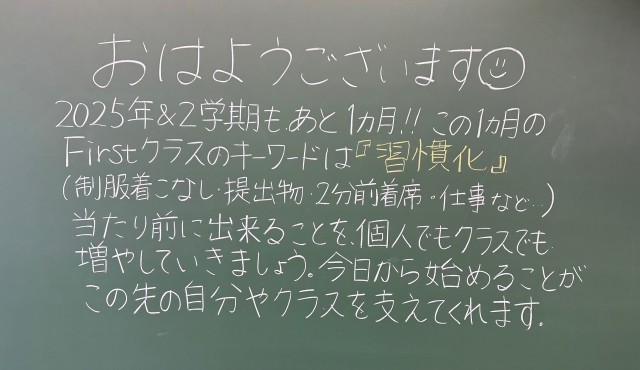 おはようございます☺
2025年&2学期も、あと1ヵ月!! この1ヵ月の
Firstクラスのキーワードは『習慣化』
(制服着こなし・提出物・2分前着席・仕事など…)
当たり前に出来ることを、個人でもクラスでも
増やしていきましょう。今日から始めることが
この先の自分やクラスを支えてくれます。